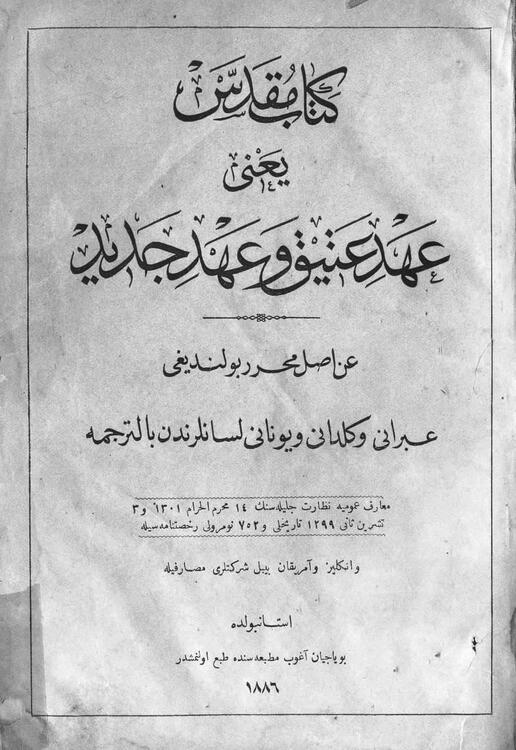 كتاب مُقَدَّس
يَعْنى
عَهْدِ عَتيق و عَهْدِ جَديد
عن اصل محرر بولنديغى
عبرانى و كلدانى و يونانى لسانلرندن بالترجمه
معارف عموميه نظارت جليله سنك ١٤ محرم الحرام ١٣٠١ و ٣
تشرين ثانى ١٢٩٩ تاريخلى و ٧٥٢ نومرولى رخصتنامه سيله
و انكليز و آمريقان بيبل شركتلرى مصارفيله
استانبولده
بوياجيان آغوب مطبعه سنده طبع اولنمشدر
١٨٨٦